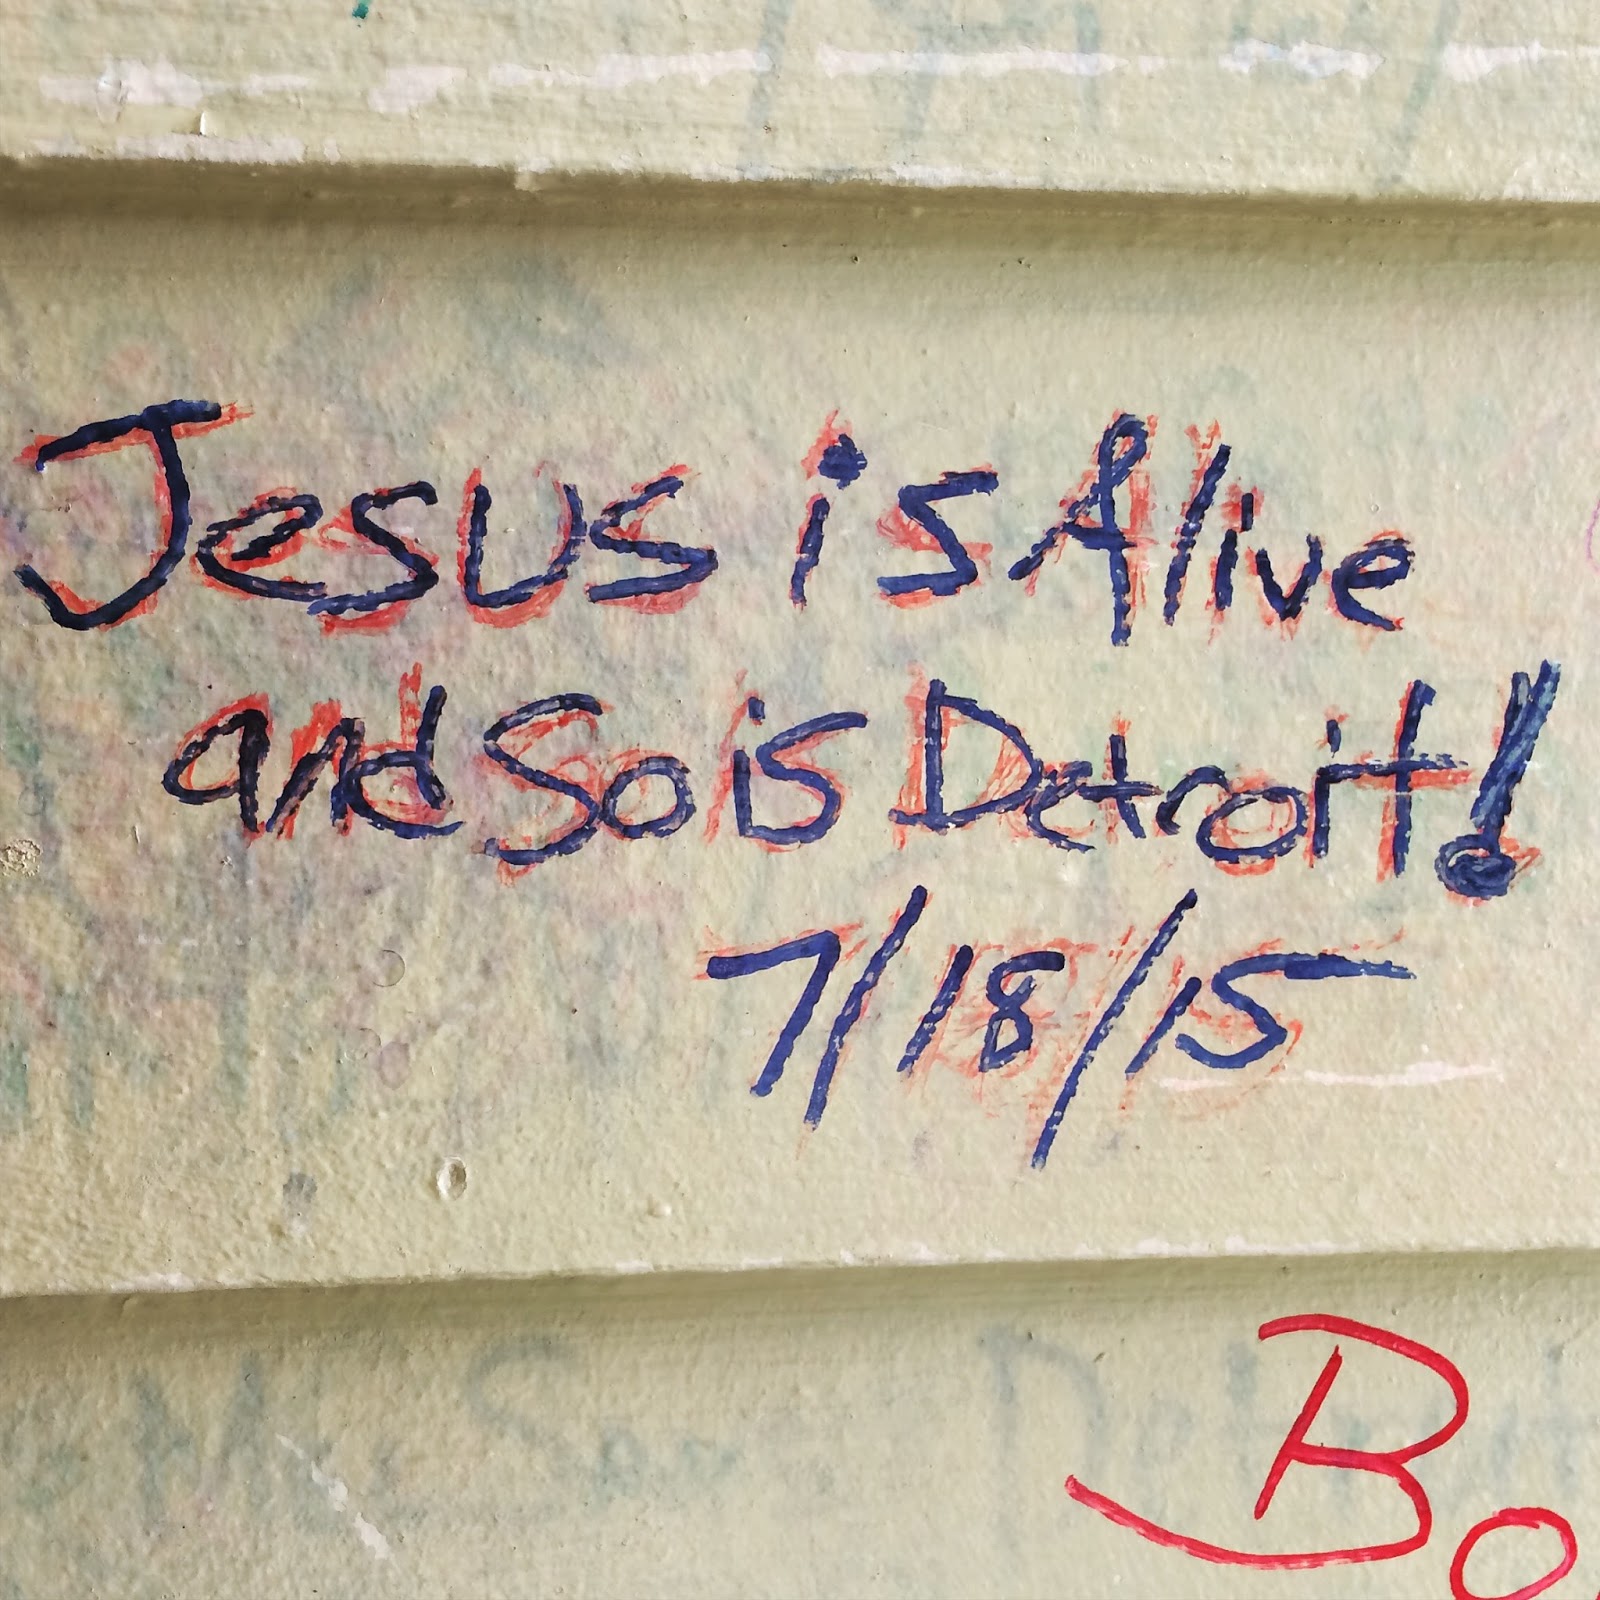 Jesus is Alive
and So is Detroit!
7/18/15
Bo